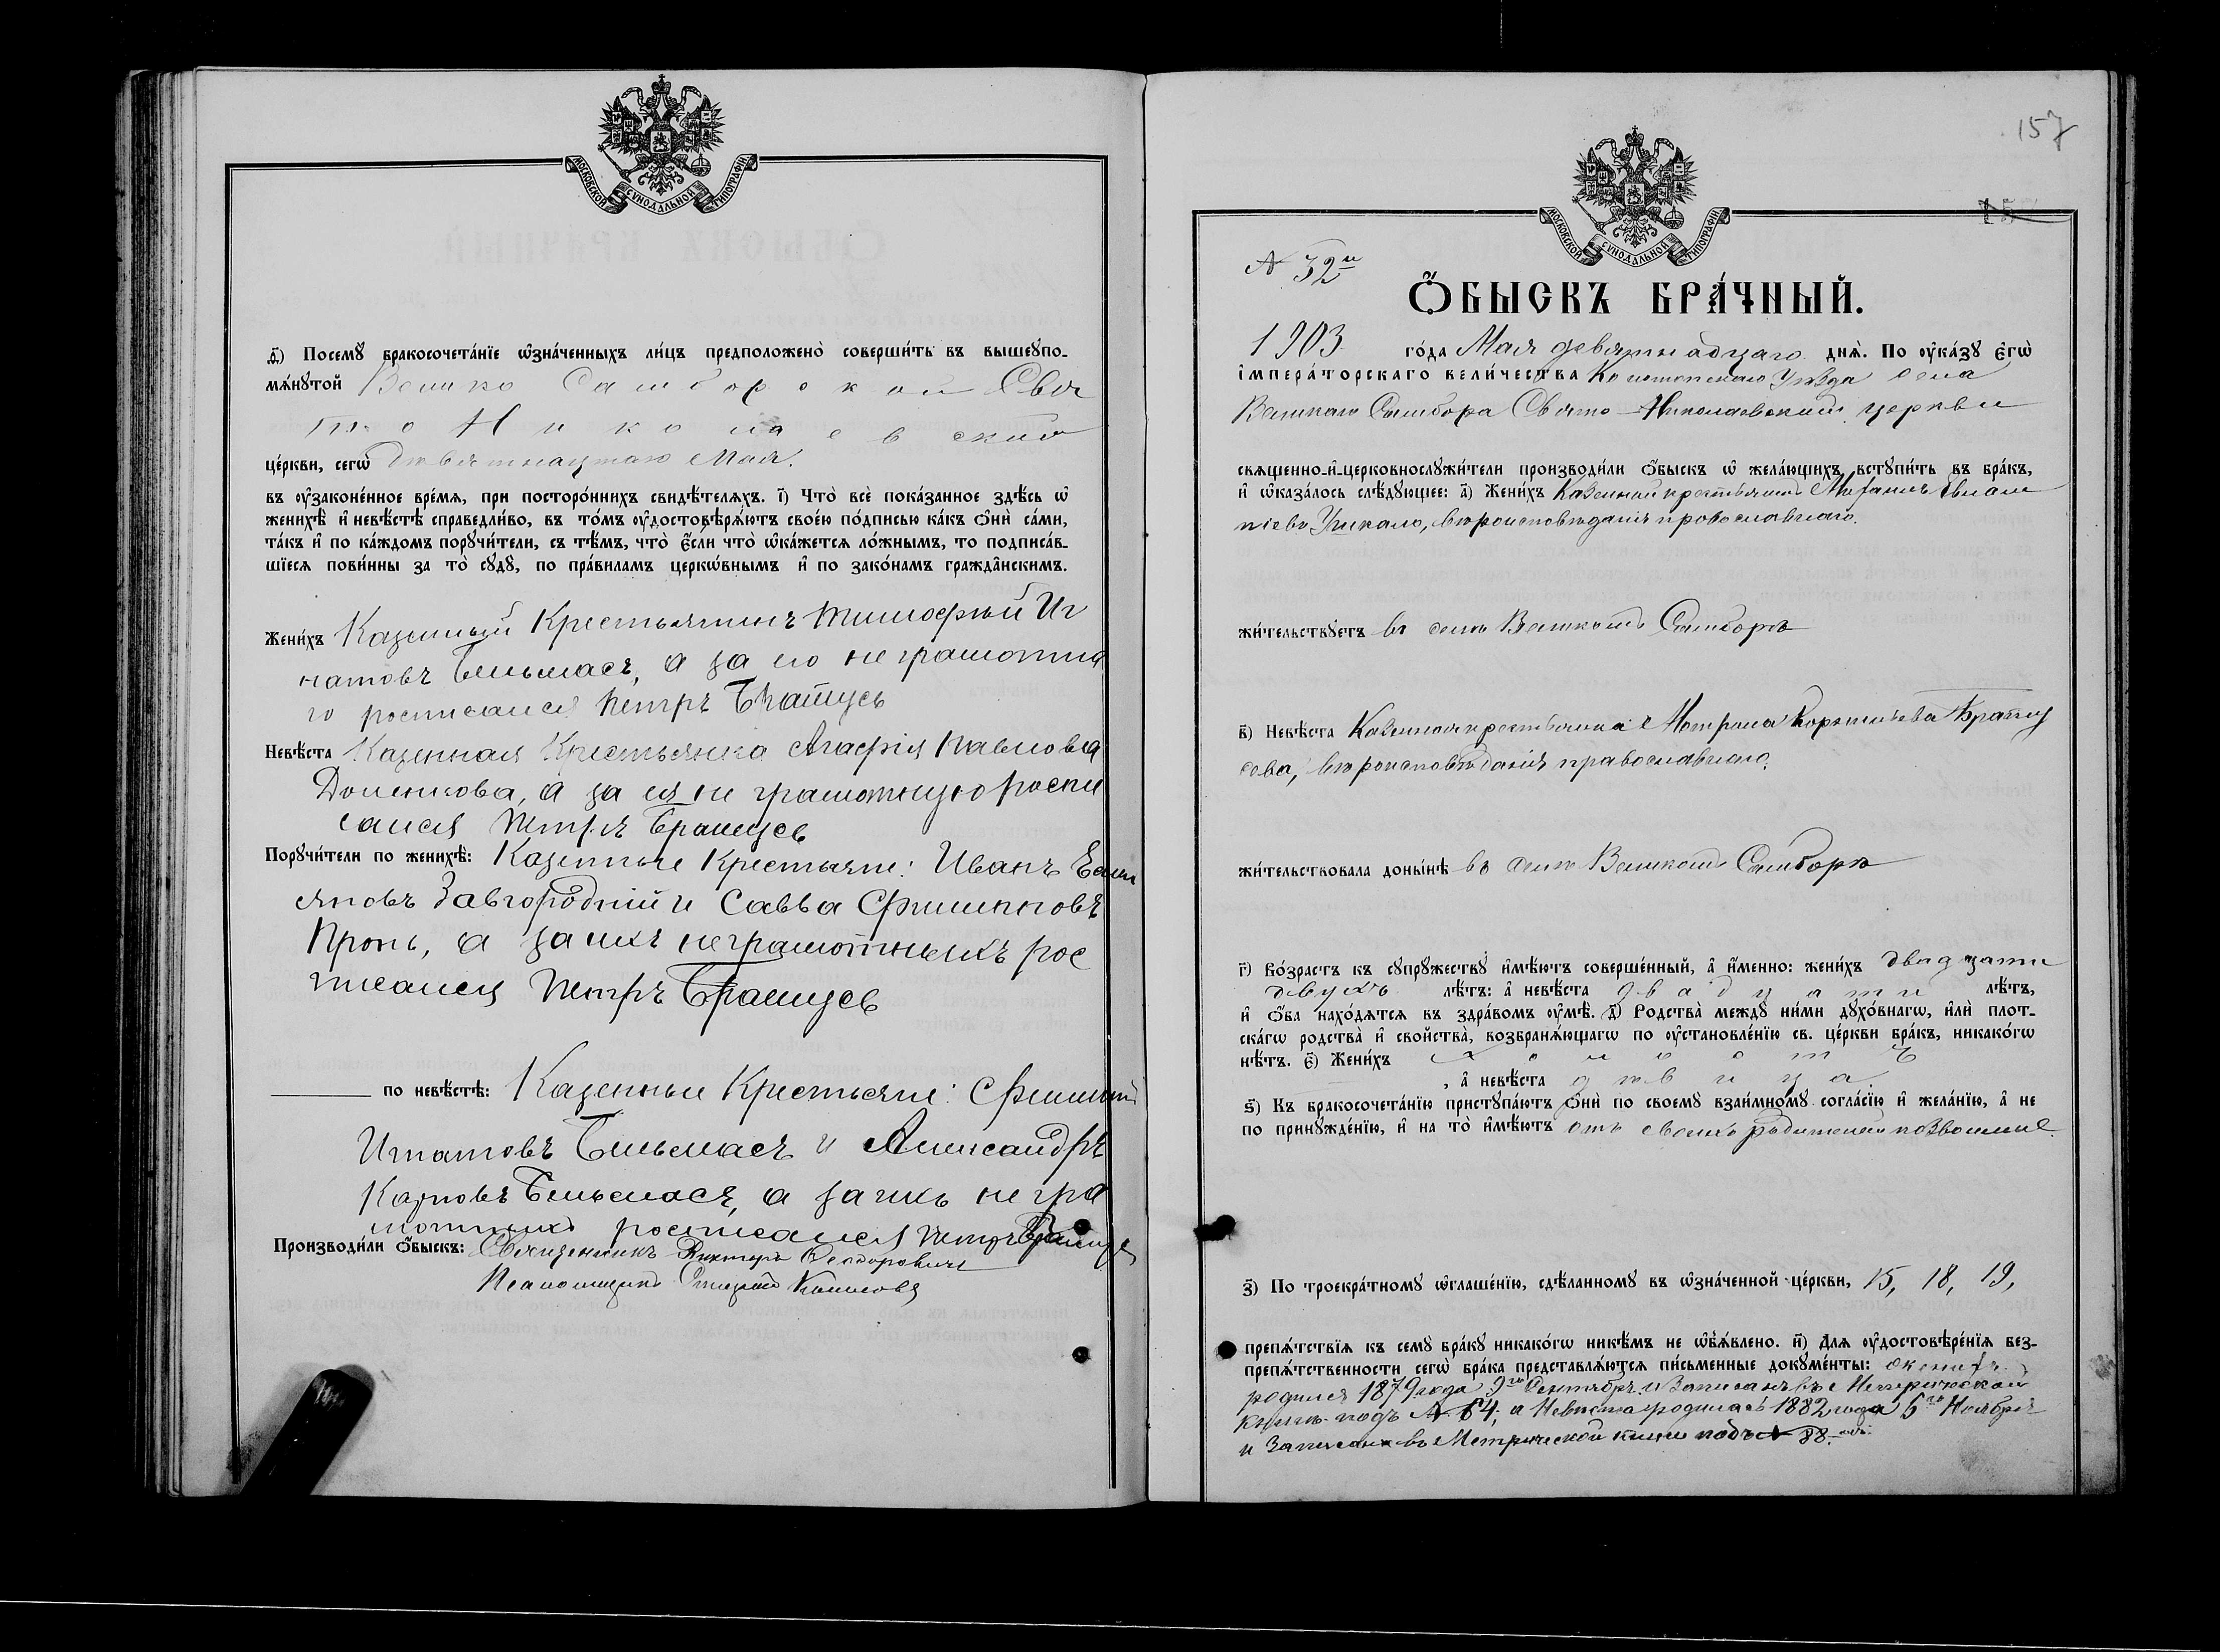 МОСКОВСКОЙ СУНОДАЛЬНОЙ ТИПОГРАФІИ
д҃) Посемꙋ̀ бракосочета́нїе ѡ҆зна́ченныхъ ли́цъ предположено̀ соверши́ть въ вышеꙋпо-
мѧ́нꙋтой Велико Самборской Свя
то Николаевской
це́ркви, сегѡ̀ девятнацтаго Мая.
въ ᲂу҆зако́ненное вре́мѧ, при посторо́ннихъ свидѣ́телѧхъ. і҃) Что̀ всѐ пока́занное здѣ́сь ѡ҆
женихѣ̀ и҆ невѣ́стѣ справедли́во, въ то́мъ ᲂу҆достовѣрѧ́ютъ свое́ю по́дписью ка́къ ѻ҆нѝ са́ми,
та́къ и҆ по ка́ждомъ порꙋчи́тели, съ тѣ́мъ, что̀ є҆́сли что̀ ѡ҆ка́жетсѧ ло́жнымъ, то подписа́в-
шїесѧ пови́нны за то̀ сꙋдꙋ̀, по пра́виламъ церко́внымъ и҆ по зако́намъ гражда̑нскимъ.
Жени́хъ Казенный Крестьянинъ Тимофѣй Иг
натовъ Бельмасъ, а за его не грамотна
го росписался Петръ Братусь
Невѣ́ста Казенная Крестьянка Агафія Павлова
Доленкова, а за ея не грамотную роспи
сался Петръ Братусь
Порꙋчи́тели по женихѣ̀: Казенные Крестьяне: Иванъ Емел
яновъ Завгородній и Савва Филиповъ
Пронь, а за ихъ неграмотныхъ рос
писался Петръ Братусь
по невѣ́стѣ: Казенные Крестьяне: Филипп
Игнатовъ Бельмасъ и Александръ
Карповъ Бельмасъ, а за ихъ не гра
мотныхъ росписался Петръ Братусь
Производи́ли ѻ҆́быскъ: Священникъ Викторъ Ѳеодоровичъ
Псаломщикъ
157
МОСКОВСКОЙ СУНОДАЛЬНОЙ ТИПОГРАФІИ
№ 32й
Ѻ҆́БЫСКЪ БРА́ЧНЫЙ.
1903 го́да Мая девятнадцаго днѧ̀. По ᲂу҆ка́зꙋ є҆гѡ̀
і҆мпера́торскаго вели́чества Конотопскаго Уѣзда села
Великаго Самбора Свято-Николаевской церкви
свѧще́нно-и҆-церковнослꙋжи́тели производи́ли ѻ҆́быскъ ѡ҆ жела́ющихъ вступи́ть въ бра́къ,
и҆ ѡ҆каза́лось слѣ́дꙋющее: а҃) Жени́хъ Казенный крестьянинъ
вѣроисповѣданія православнаго.
жи́тельствꙋетъ въ селѣ Великомъ Самборѣ
в҃) Невѣ́ста Казенная крестьянка Матрона Корнильева Брату
сева, вѣроисповѣданія православнаго.
жи́тельствовала доны́нѣ въ селѣ Великомъ Самборѣ
г҃) Во́зрастъ къ сꙋпрꙋ́жествꙋ и҆мѣ́ютъ соверше́нный, а҆ и҆́менно: жени́хъ двадцати
двухъ лѣ́тъ: а҆ невѣ́ста двадцати лѣ́тъ,
и҆ ѻ҆́ба нахо́дѧтсѧ въ здра́вомъ ᲂу҆мѣ̀. д҃) Родства̀ междꙋ̀ ни́ми дꙋхо́внагѡ, и҆лѝ плот-
ска́гѡ родства̀ и҆ сво́йства̀, возбранѧ́ющагѡ по ᲂу҆становле́нїю св. це́ркви бра́къ, никако́гѡ
нѣ́тъ. є҃) Жени́хъ холостъ
, а҆ невѣ́ста дѣвица
ѕ҃) Къ бракосочета́нїю пристꙋпа́ютъ ѻ҆нѝ по своемꙋ̀ взаи́мномꙋ согла́сїю и҆ жела́нїю, а҆ не
по принꙋжде́нїю, и҆ на то̀ и҆мѣ́ютъ отъ своихъ родителей позволеніе.
з҃) По троекра́тномꙋ ѡ҆глаше́нїю, сдѣ́ланномꙋ въ ѡ҆зна́ченной це́ркви, 15, 18, 19,
препѧ́тствїѧ къ семꙋ̀ бра́кꙋ никако́гѡ никѣ́мъ не ѡ҆б̾ѧ́влено. и҃) Для ᲂу҆достовѣре́нїѧ без-
препѧ́тственности сегѡ̀ бра́ка представлѧ́ютсѧ пи́сьменные докꙋме́нты: женихъ
родился 1879 года 9го Сентября и Записанъ въ Метрической
книгѣ подъ № 64, а Невеста родилась 1882 года 6го Ноября
и Записана въ Метрической книги подъ № 88.